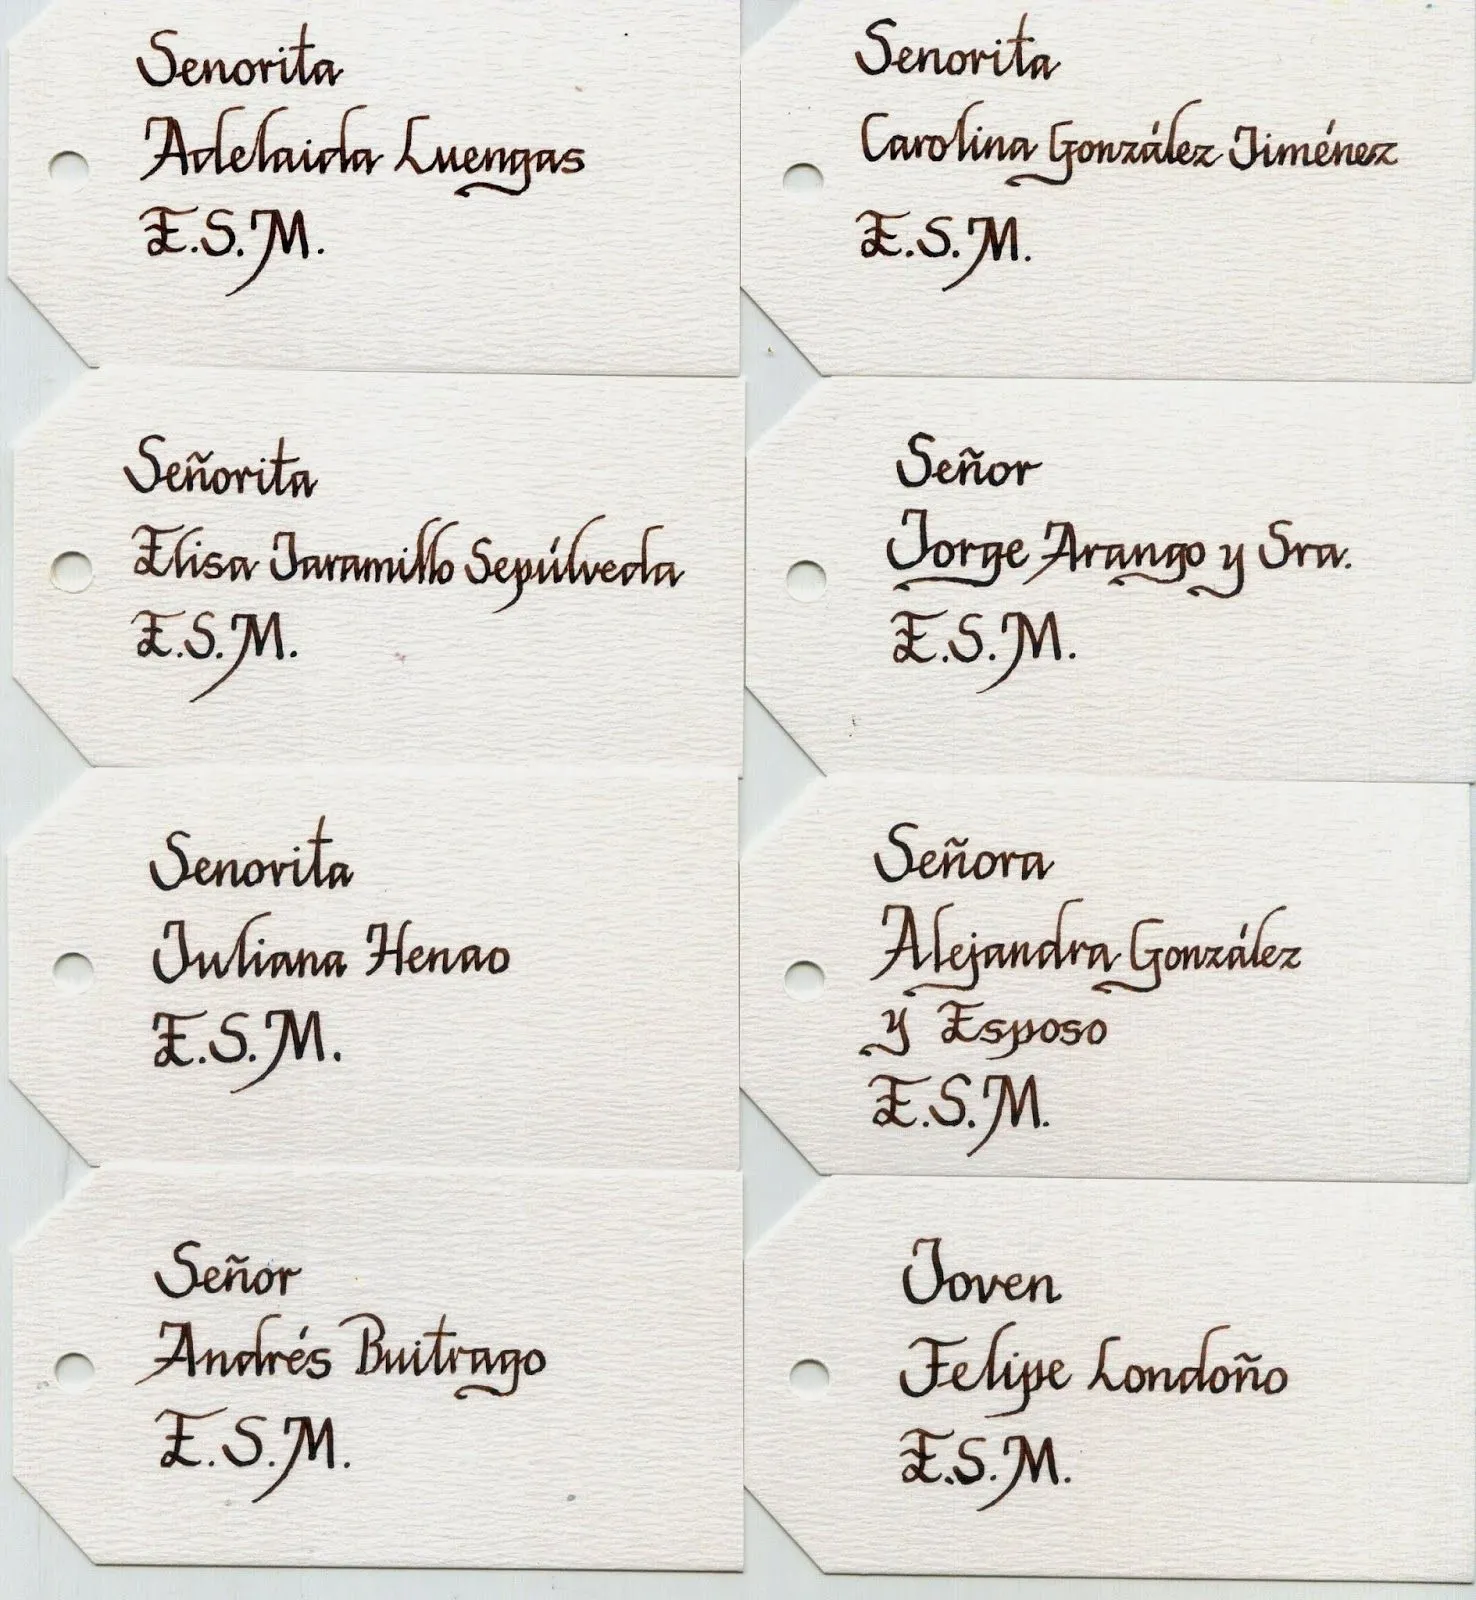 Senorita
Adelaida Luengas
E.S.M.
Senorita
Carolina González Jiménez
E.S.M.
Señorita
Elisa Jaramillo Sepúlveda
E.S.M.
Señor
Jorge Arango y Sra.
E.S.M.
Senorita
Juliana Henao
E.S.M.
Señora
Alejandra González
y Esposo
E.S.M.
Señor
Andrés Buitrago
E.S.M.
Joven
Felipe Londoño
E.S.M.